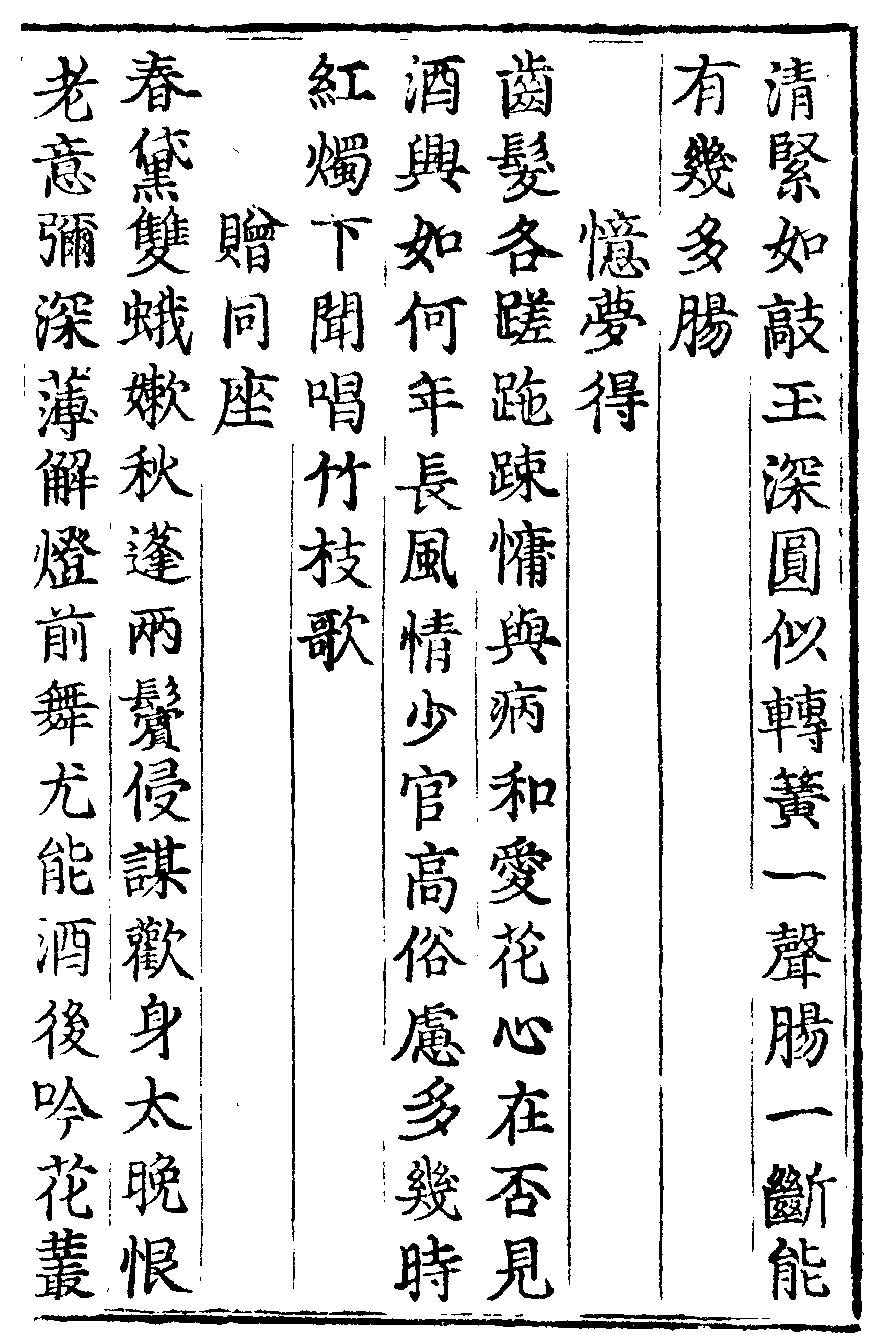 清緊如敲玉深圓似轉簧一聲腸一斷能
有幾多腸
憶夢得
齒髮各蹉跎踈慵與病和愛花心在否見
酒興如何年長風情少官高俗慮多幾時
紅燭下聞唱竹枝歌
贈同座
春黛雙蛾嫩秋蓬兩鬢侵謀歡身太晚恨
老意彌深薄解燈前舞尤能酒後吟花叢